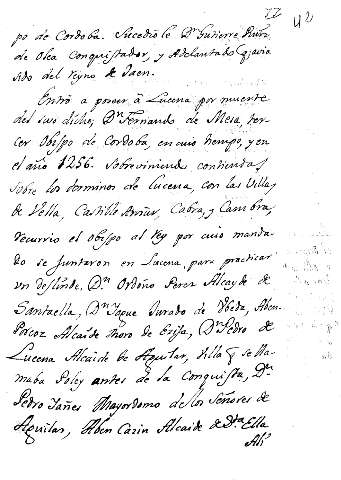 22 42
po de Cordoba. Sucediole Dn Gutierre Ruiz
de Olea Conquistador, y Adelantado q havia
sido del Reyno de Jaen.
Entró a poseer à Lucena por muerte
del suso dicho, Dn Fernando de Mesa, ter-
cer Obispo de Cordoba, en cuio tiempo, y en
el año 1256. Sobreviniendo contiendas
sobre los terminos de Lucena, con las Villas
de Vella, Castillo Anzur, Cabra, y Cambra,
recurrio el obispo al Rey por cuio manda-
do se juntaron en Lucena para practicar
un deslinde. Dn Ordoño Perez Alcayde de
Santaella, Dn Jaque Jurado de Ubeda, Aben-
Pacoz Alcaide Moro de Ecija, Dn Pedro de
Lucena Alcaide de Aguilar, Villa q se lla-
maba Poley antes de la Conquista, Dn
Pedro Yañes Mayordomo de los Señores de
Aguilar, Aben Cazin Alcaide de Sta Ella
Ali